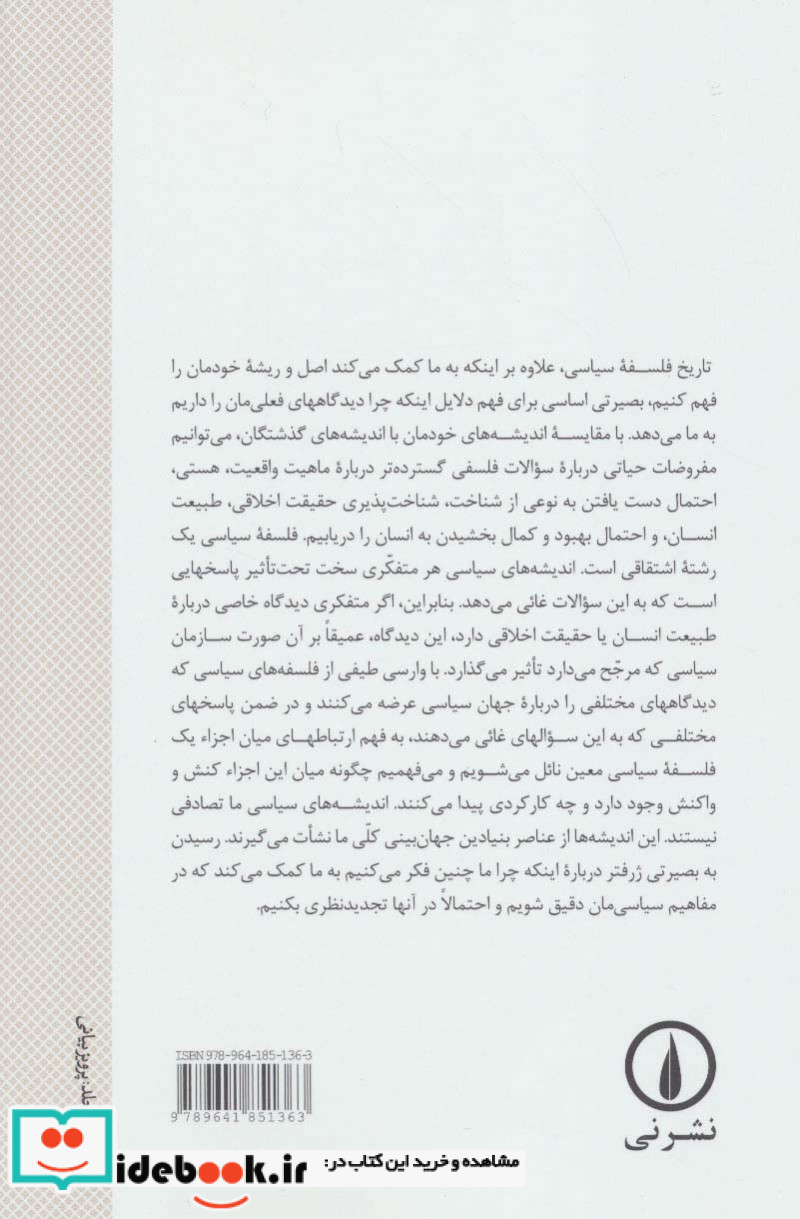 تاریخ فلسفهٔ سیاسی، علاوه بر اینکه به ما کمک می‌کند اصل و ریشهٔ خودمان را
فهم کنیم، بصیرتی اساسی برای فهم دلایل اینکه چرا دیدگاههای فعلی‌مان را داریم
به ما می‌دهد. با مقایسهٔ اندیشه‌های خودمان با اندیشه‌های گذشتگان، می‌توانیم
مفروضات حیاتی دربارهٔ سؤالات فلسفی گسترده‌تر دربارهٔ ماهیت واقعیت، هستی،
احتمال دست یافتن به نوعی از شناخت، شناخت‌پذیری حقیقت اخلاقی، طبیعت
انسان، و احتمال بهبود و کمال بخشیدن به انسان را دریابیم. فلسفهٔ سیاسی یک
رشتهٔ اشتقاقی است. اندیشه‌های سیاسی هر متفکّری سخت تحت‌تأثیر پاسخهایی
است که به این سؤالات غائی می‌دهد. بنابراین، اگر متفکری دیدگاه خاصی دربارهٔ
طبیعت انسان یا حقیقت اخلاقی دارد، این دیدگاه، عمیقاً بر آن صورت سازمان
سیاسی که مرجّح می‌دارد تأثیر می‌گذارد. با وارسی طیفی از فلسفه‌های سیاسی که
دیدگاههای مختلفی را دربارهٔ جهان سیاسی عرضه می‌کنند و در ضمن پاسخهای
مختلفی که به این سؤالهای غائی می‌دهند، به فهم ارتباطهای میان اجزاء یک
فلسفهٔ سیاسی معین نائل می‌شویم و می‌فهمیم چگونه میان این اجزاء کنش و
واکنش وجود دارد و چه کارکردی پیدا می‌کنند. اندیشه‌های سیاسی ما تصادفی
نیستند. این اندیشه‌ها از عناصر بنیادین جهان‌بینی کلّی ما نشأت می‌گیرند. رسیدن
به بصیرتی ژرفتر دربارهٔ اینکه چرا ما چنین فکر می‌کنیم به ما کمک می‌کند که در
مفاهیم سیاسی‌مان دقیق شویم و احتمالاً در آنها تجدیدنظری بکنیم.
جلد: پرویز بیانی
ISBN 978-964-185-136-3
9 789641 851363
نشر نی
مشاهده و خرید این کتاب در:
idebook.ir